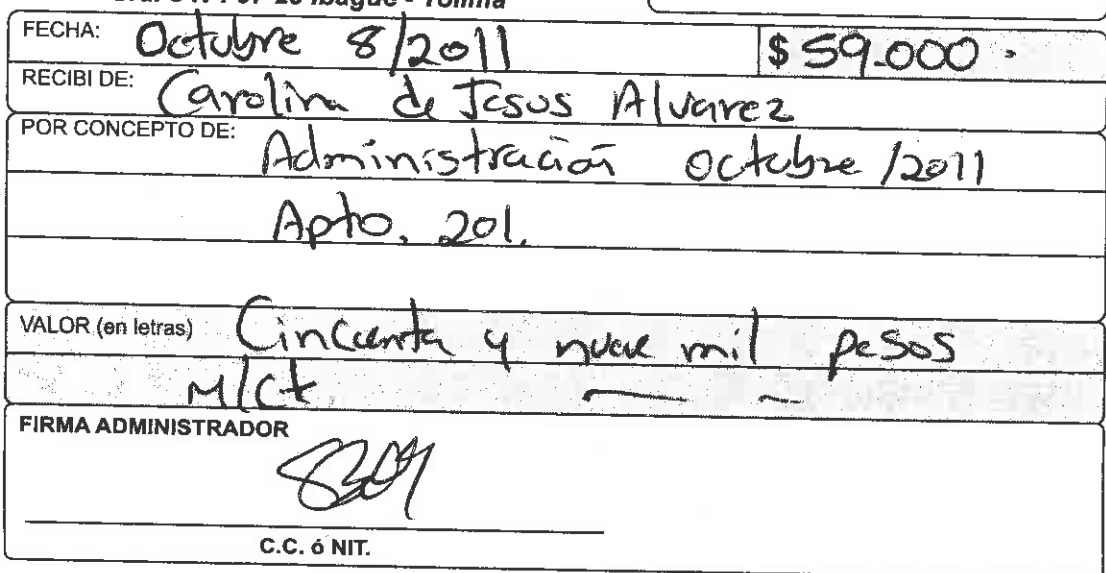 Ibagué - Tolima
FECHA: Octubre 8/2011 $ 59.000.
RECIBI DE: Carolina de Jesus Alvarez
POR CONCEPTO DE: Administración octubre /2011
Apto. 201.
VALOR (en letras) Cincuenta y nueve mil pesos
M/Ct.
FIRMA ADMINISTRADOR
C.C. ó NIT.